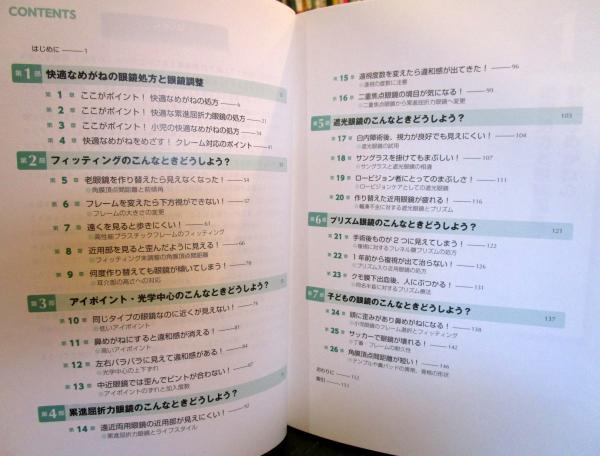 CONTENTS
はじめに 1
第1部 快適なめがねの眼鏡処方と眼鏡調整
第1章 ここがポイント! 快適なめがねの処方 6
第2章 ここがポイント! 快適な累進屈折力眼鏡の処方 21
第3章 ここがポイント! 小児の快適めがねの処方 34
第4章 快適なめがねをめざす! クレーム対応のポイント 41
第2部 フィッティングのこんなときどうしよう?
第5章 老眼鏡を作り替えたら見えなくなった! 54
※角膜頂点間距離と前傾角
第6章 フレームを変えたら下方視ができない! 57
※フレームの大きさの変更
第7章 遠くを見ると歩きにくい! 61
※高性能プラスチックフレームのフィッティング
第8章 近用部を見ると歪んだように見える! 66
※フィッティング未調整の角膜頂点間距離
第9章 何度作り替えても眼鏡が傾いてしまう! 70
※耳介部の高さへの対応
第3部 アイポイント・光学中心のこんなときどうしよう?
第10章 同じタイプの眼鏡なのに近くが見えない! 76
※低いアイポイント
第11章 鼻めがねにすると違和感が消える! 81
※高いアイポイント
第12章 左右バラバラに見えて違和感がある! 84
※光学中心の上下ずれ
第13章 中近眼鏡では歪んでピントが合わない! 87
※アイポイントのずれと加入度数
第4部 累進屈折力眼鏡のこんなときどうしよう?
第14章 遠近両用眼鏡の近用部が見えにくい! 92
※累進屈折力眼鏡とライフスタイル
第15章 遠視度数を変えたら違和感が出てきた! 96
※遠視の度数に注意
第16章 二重焦点眼鏡の境目が気になる! 99
※二重焦点眼鏡から累進屈折力眼鏡へ変更
第5部 遮光眼鏡のこんなときどうしよう? 103
第17章 白内障術後、視力が良好でも見えにくい! 104
※遮光眼鏡の試用
第18章 サングラスを掛けてもまぶしい! 107
※サングラスと遮光眼鏡の相違
第19章 ロービジョン者にとってのまぶしさ! 111
※ロービジョンケアとしての遮光眼鏡
第20章 作り替えた近用眼鏡が疲れる! 116
※輻湊不全に対する遮光眼鏡とプリズム
第6部 プリズム眼鏡のこんなときどうしよう? 121
第21章 手術後ものが2つに見えてしまう! 122
※術後に対するフレネル膜プリズムの処方
第22章 1年前から複視が出て治らない! 126
※プリズム入り近用眼鏡の処方
第23章 クモ膜下出血後、人にぶつかる! 131
※同名半盲に対するプリズム療法
第7部 子どもの眼鏡のこんなときどうしよう? 137
第24章 頭に歪みがあり鼻めがねになる! 138
※小児眼鏡のフレーム選択とフィッティング
第25章 サッカーで眼鏡が壊れる! 142
※丁番・フレームの耐久性
第26章 角膜頂点間距離が短い! 146
※テンプルや鼻パッドの素材、骨格の形状
おわりに 152
索引 153